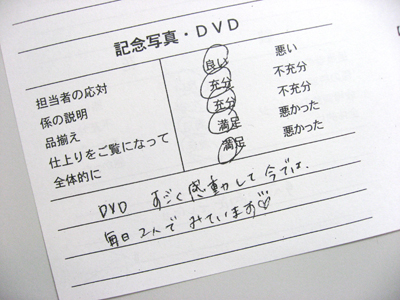 記念写真・DVD
担当者の応対 良い 悪い
係の説明 充分 不充分
品揃え 充分 不充分
仕上りをご覧になって 満足 悪かった
全体的に 満足 悪かった
DVD すごく感動して今では、
毎日2人でみています♡